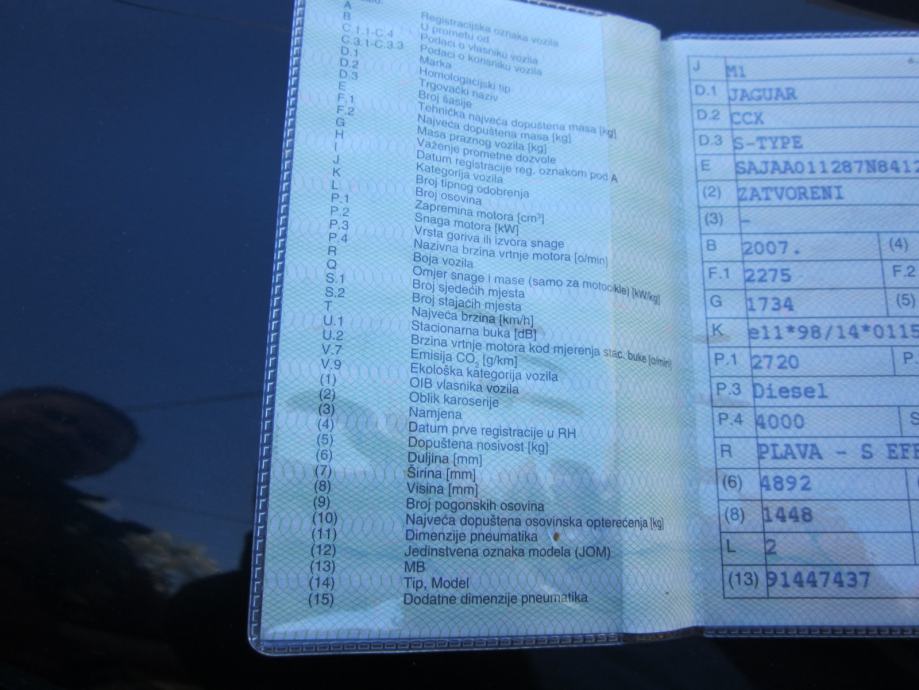 A Registracijska oznaka vozila
B U prometu od
C.1.1-C.4 Podaci o vlasniku vozila
C.3.1-C.3.3 Podaci o korisniku vozila
D.1 Marka
D.2 Homologacijski tip
D.3 Trgovački naziv
E Broj šasije
F.1 Tehnička najveća dopuštena masa [kg]
F.2 Najveća dopuštena masa [kg]
G Masa praznog vozila [kg]
H Važenje prometne dozvole
I Datum registracije reg. oznakom pod A
J Kategorija vozila
K Broj tipnog odobrenja
L Broj osovina
P.1 Zapremina motora [cm³]
P.2 Snaga motora [kW]
P.3 Vrsta goriva ili izvora snage
P.4 Nazivna brzina vrtnje motora [o/min]
R Boja vozila
Q Omjer snage i mase (samo za motocikle) [kW/kg]
S.1 Broj sjedećih mjesta
S.2 Broj stajaćih mjesta
T Najveća brzina [km/h]
U.1 Stacionarna buka [dB]
U.2 Brzina vrtnje motora kod mjerenja stac. buke [o/min]
V.7 Emisija CO₂ [g/km]
V.9 Ekološka kategorija vozila
(1) OIB vlasnika vozila
(2) Oblik karoserije
(3) Namjena
(4) Datum prve registracije u RH
(5) Dopuštena nosivost [kg]
(6) Duljina [mm]
(7) Širina [mm]
(8) Visina [mm]
(9) Broj pogonskih osovina
(10) Najveća dopuštena osovinska opterećenja [kg]
(11) Dimenzije pneumatika
(12) Jedinstvena oznaka modela (JOM)
(13) MB
(14) Tip, Model
(15) Dodatne dimenzije pneumatika
J M1
D.1 JAGUAR
D.2 CCX
D.3 S-TYPE
E SAJAA011287N8412
(2) ZATVORENI
(3) –
B 2007. (4)
F.1 2275 F.2
G 1734 (5)
K e11*98/14*0115
P.1 2720 P.
P.3 Diesel
P.4 4000 S
R PLAVA - S EFE
(6) 4892
(8) 1448
L 2
(13) 91447437